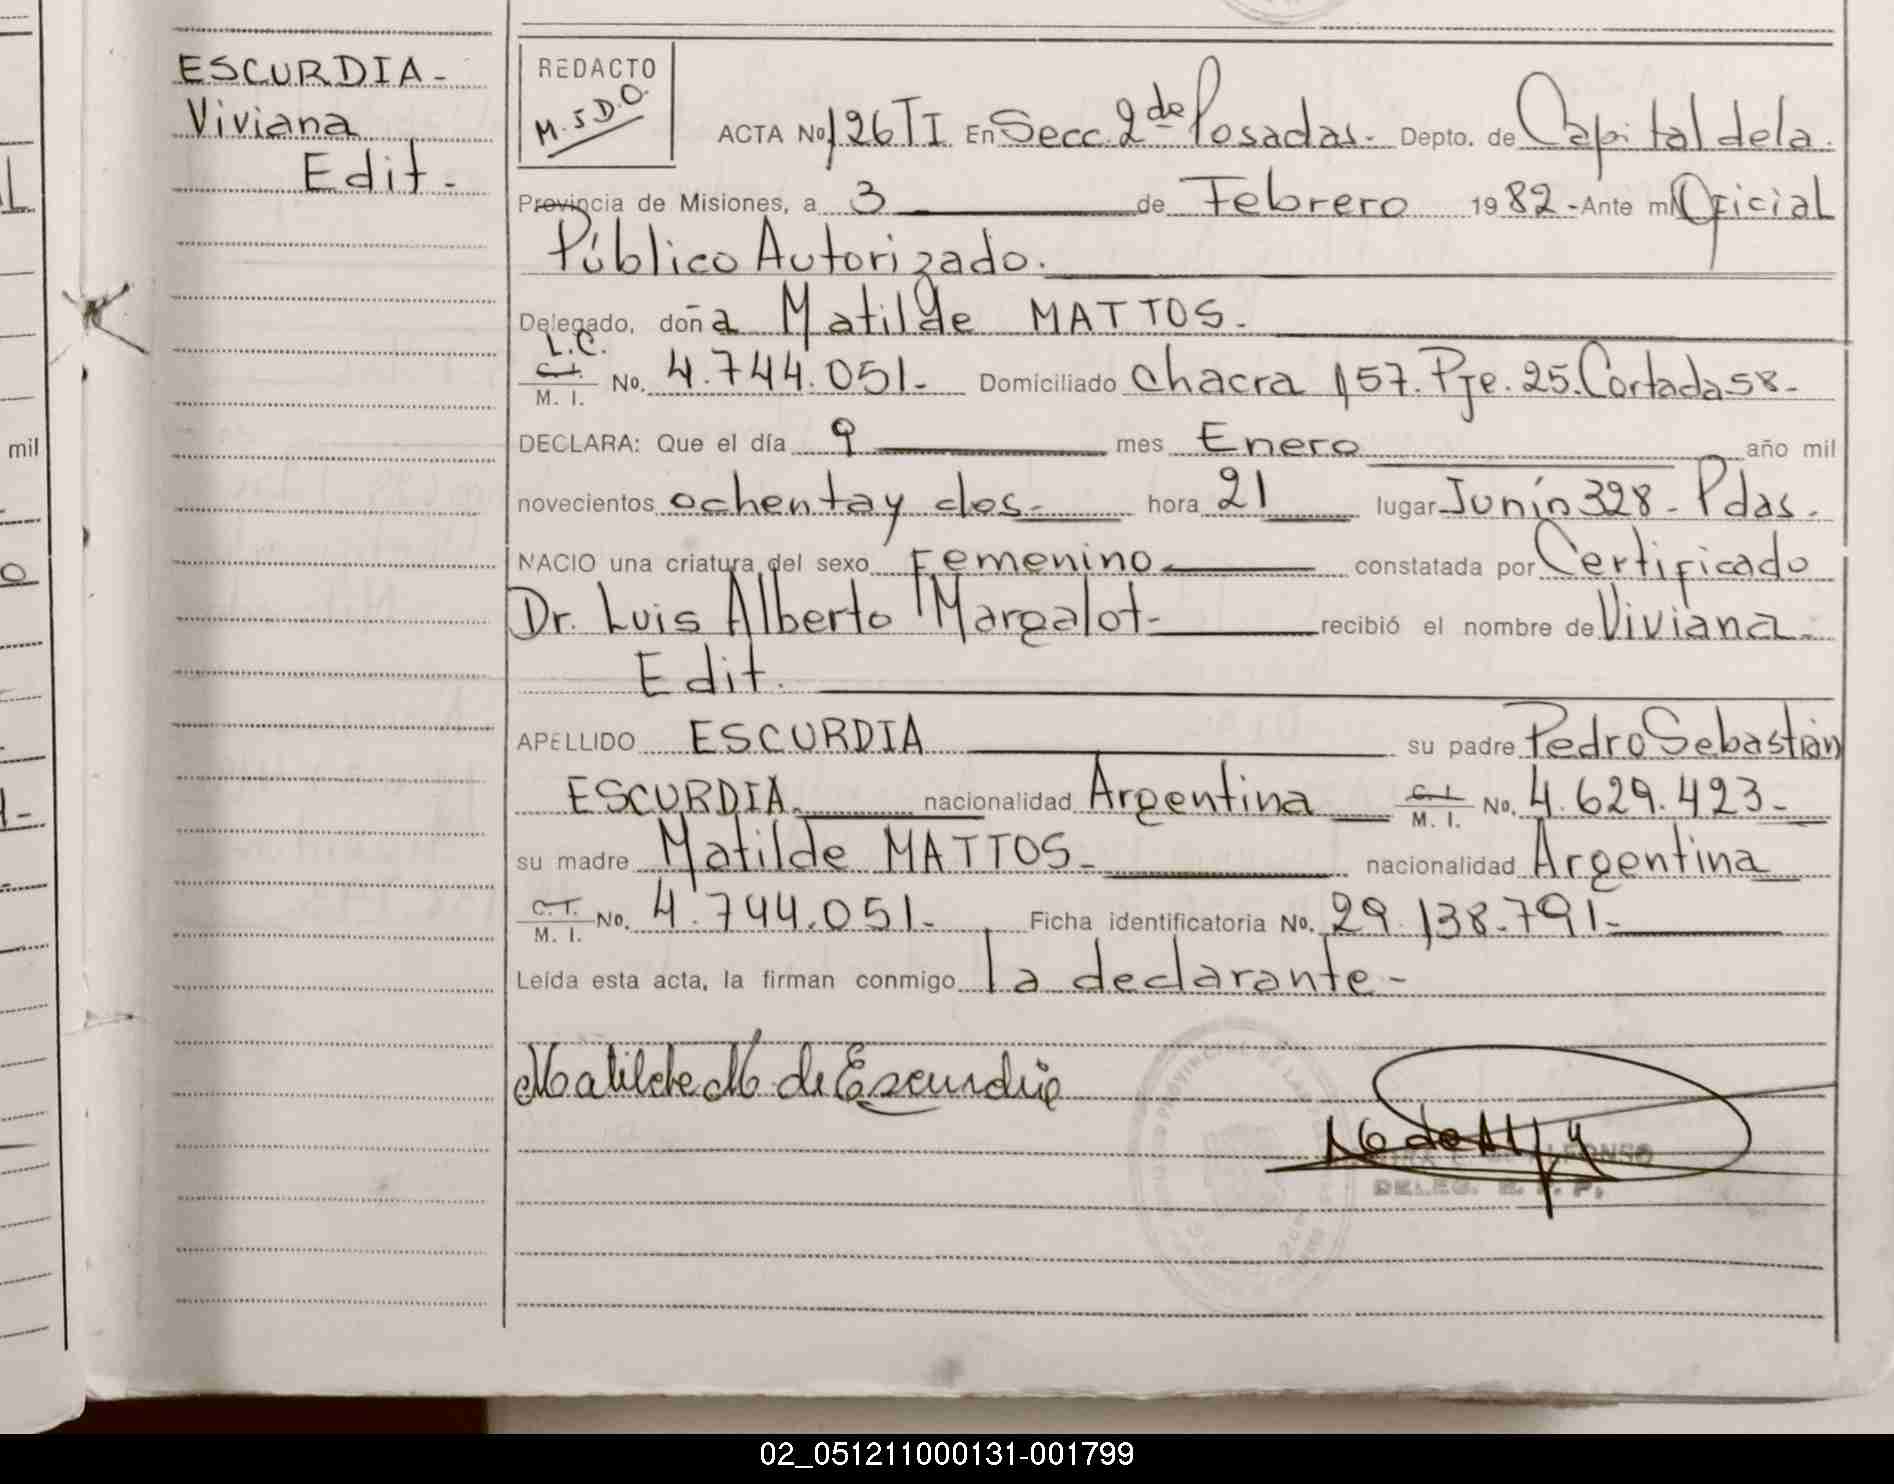 ESCURDIA-
Viviana
Edit-
REDACTO
M.S D.O.
ACTA No 126 TI En Secc. 2da Posadas- Depto. de Capital de la
Provincia de Misiones, a 3 de Febrero 1982-Ante mí Oficial
Público Autorizado.
Delegado, doña Matilde MATTOS-
L.C.
C.I. / M. I. No. 4.744.051- Domiciliado Chacra 157. Pje. 25. Cortada 58-
DECLARA: Que el día 9 mes Enero año mil
novecientos ochenta y dos- hora 21 lugar Junín 328- Pdas.
NACIO una criatura del sexo Femenino constatada por Certificado
Dr. Luis Alberto Margalot- recibió el nombre de Viviana-
Edit.
APELLIDO ESCURDIA su padre Pedro Sebastián
ESCURDIA. nacionalidad Argentina C.I. / M. I. No. 4.629.423-
su madre Matilde MATTOS- nacionalidad Argentina
C.I. / M. I. No. 4.744.051- Ficha identificatoria No. 29.138.791-
Leída esta acta, la firman conmigo la declarante-
Matilde M. de Escurdia
DELEG. R. P.
mil
02_051211000131-001799